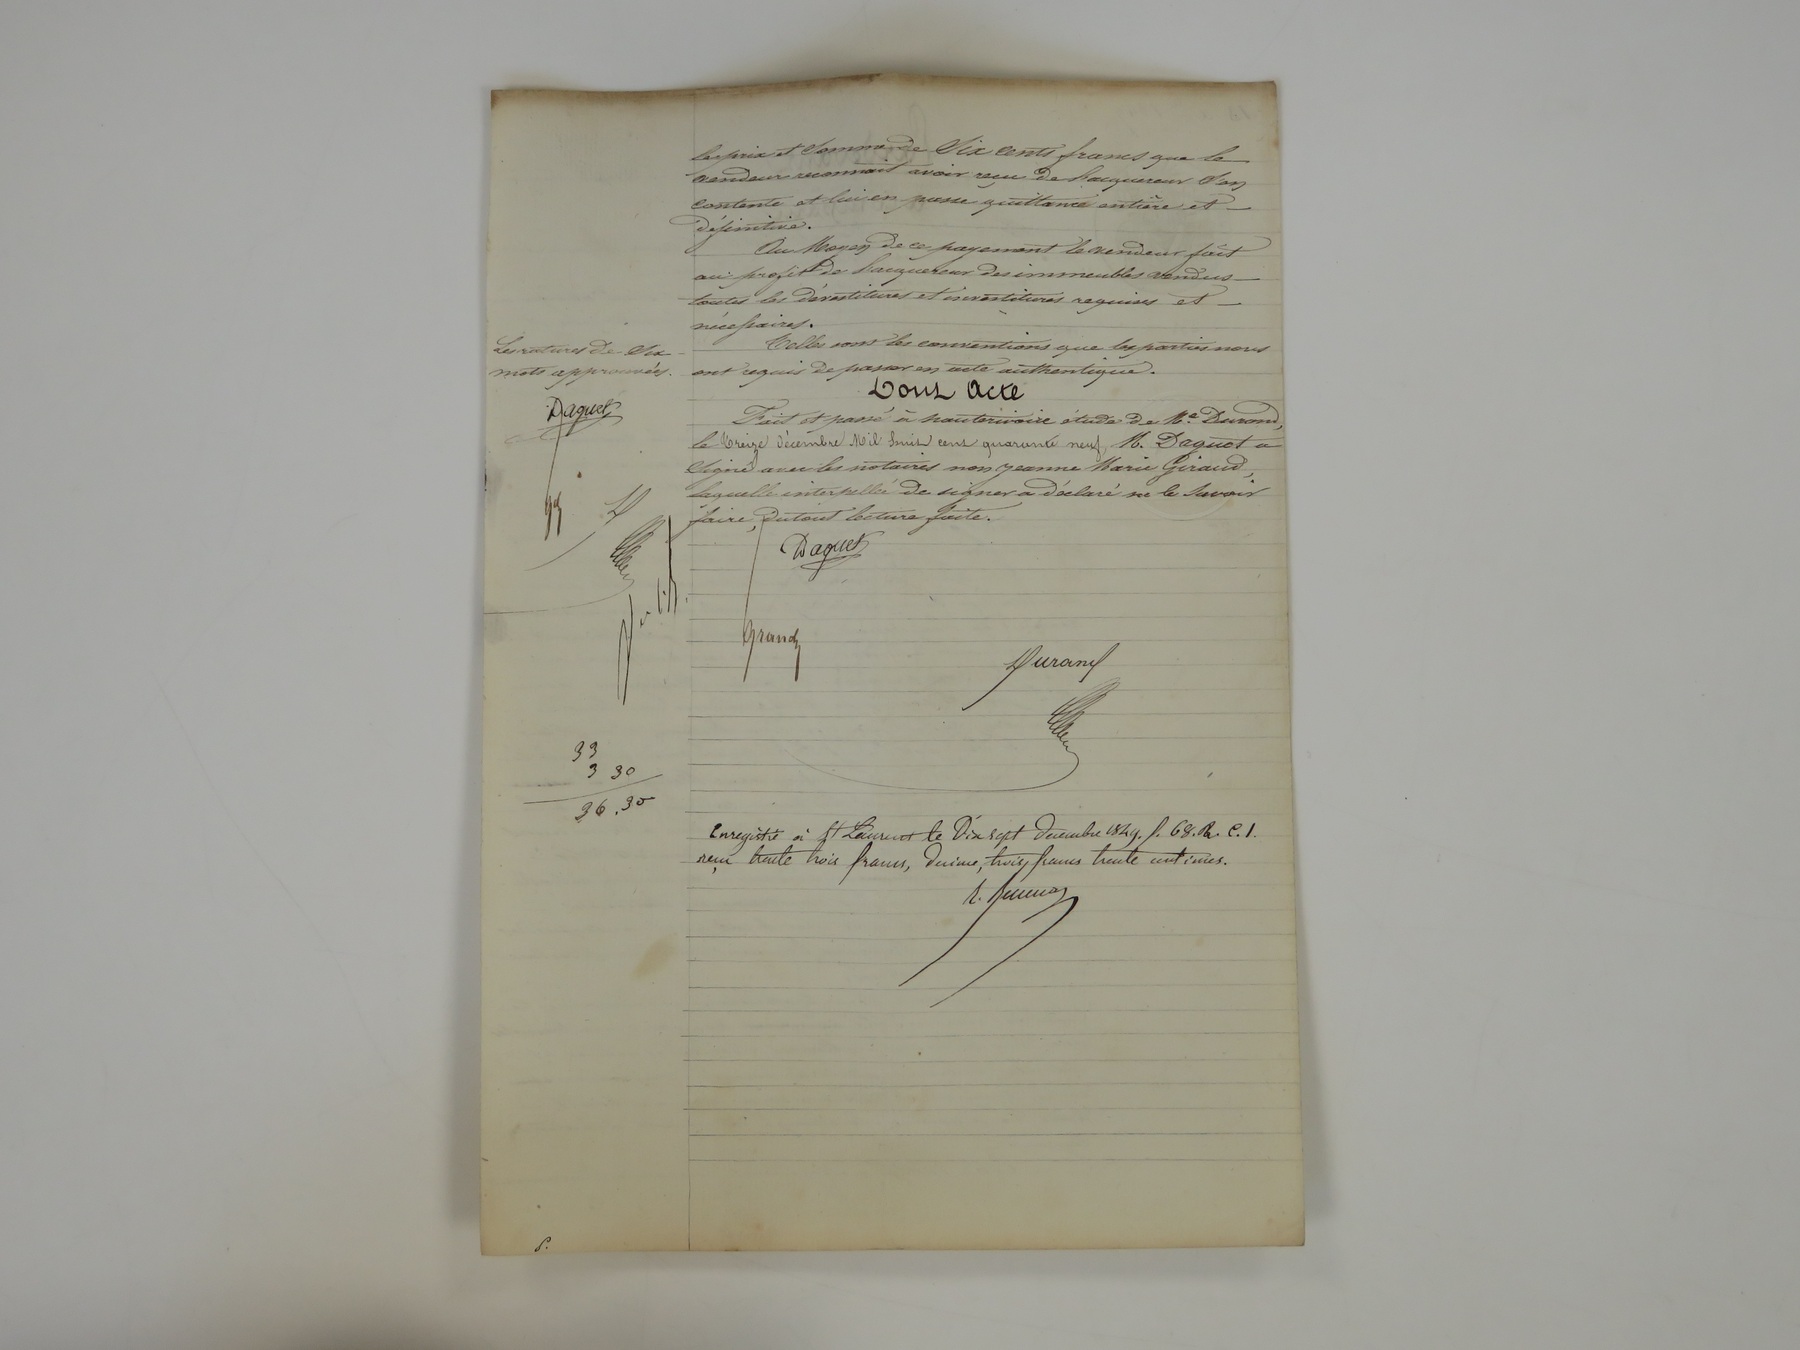 le prix et Somme de Six cents francs que le
vendeur reconnait avoir reçu de l'acquereur S'en
contente et lui en passe quittance entière et
définitive.
Au Moyen de ce payement le vendeur fait
au profit de l'acquereur des immeubles vendus
toutes les dévestitures et investitures requises et
nécessaires.
Telles sont les conventions que les parties nous
ont requis de passer en acte authentique.
Dont Acte
Fait et passé à hauterivoire étude de Me. Durand,
le treize décembre Mil huit cent quarante neuf, M. Daguet a
Signé avec les notaires non Jeanne Marie Giraud,
laquelle interpellée de signer a déclaré ne le Savoir
faire, du tout lecture faite.
Les ratures de Six
mots approuvées.
Daguet
D
Daguet
Grand
Durand
33
3 30
36.30
Enregistré à St Laurent le Dix sept decembre 1849. f. 68. R. C. 1.
reçu trente trois francs, decime, trois francs trente centimes.